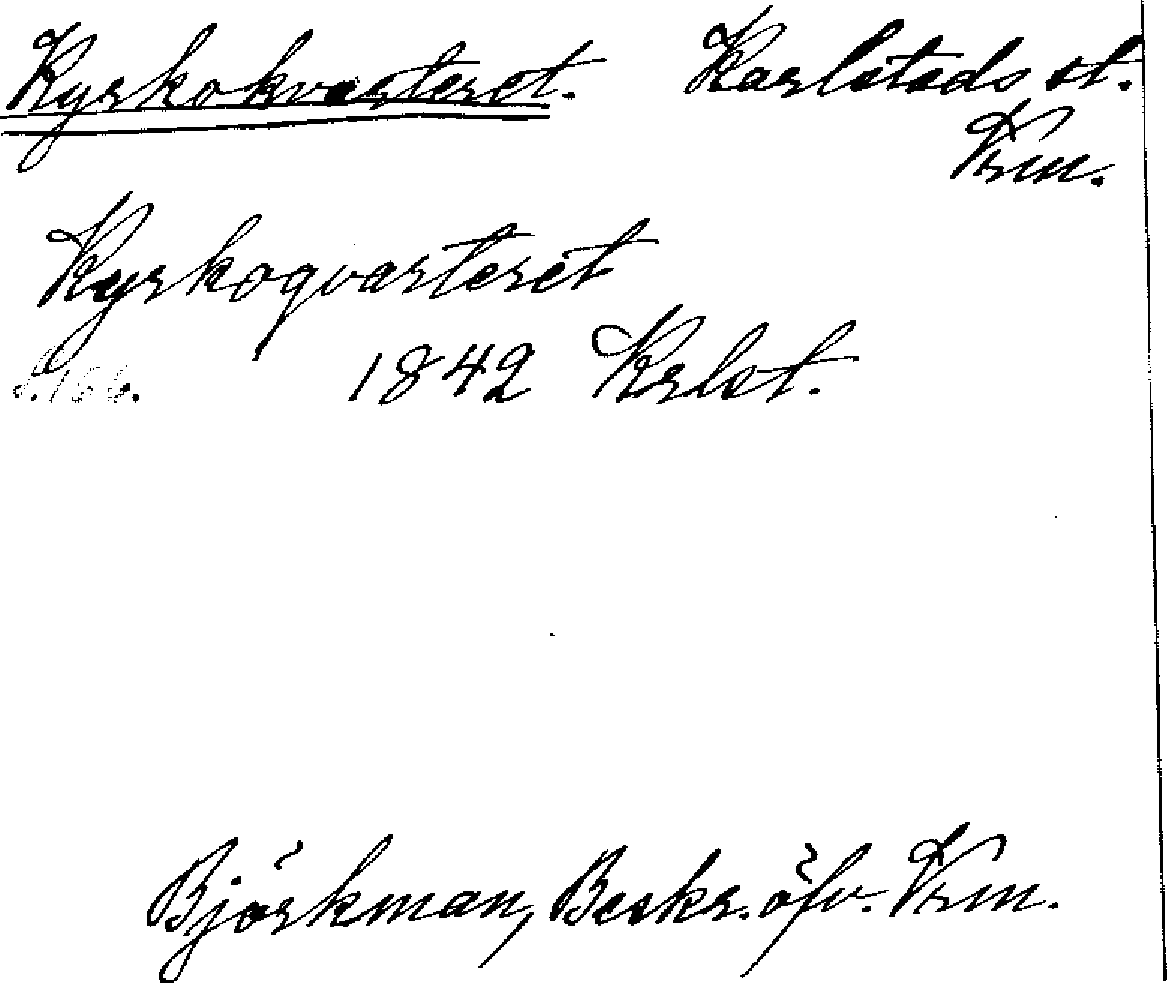 Kyrkokvarteret. Karlstads st.
Vrm.
Kyrkoqvarteret
s. 166. 1842 Krlst.
Björkman, Beskr. öfv. Vrm.